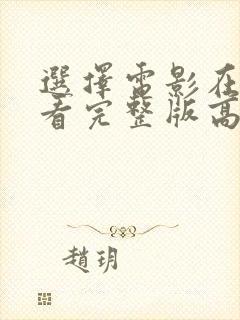 選擇雷影在
看完整版高
趙玥